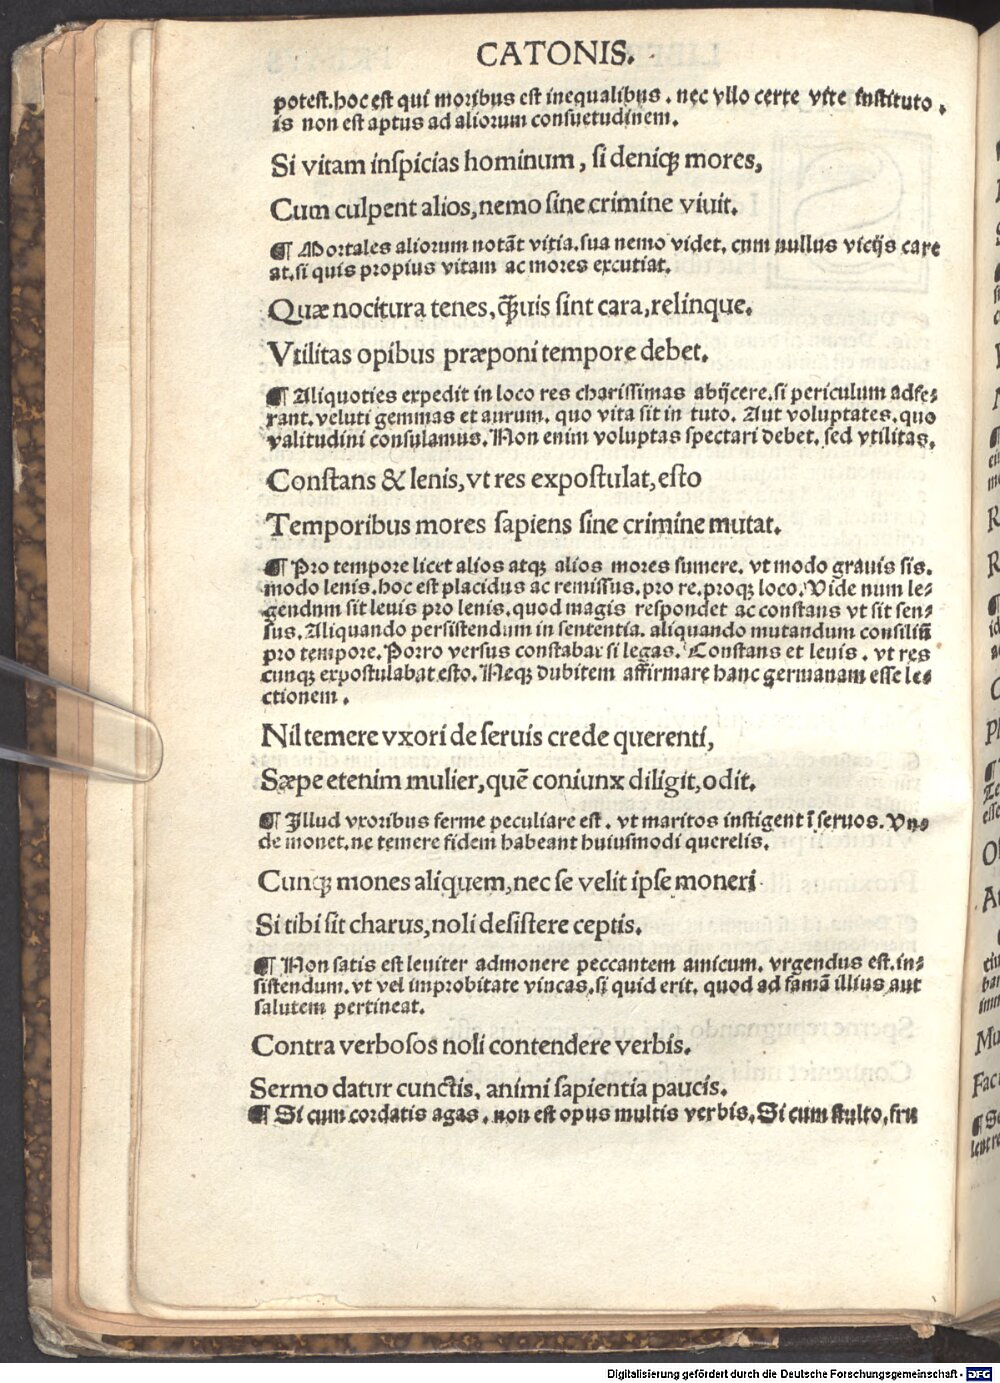 CATONIS.
potest. hoc est qui moribus est inequalibus. nec vllo certe vite instituto.
is non est aptus ad aliorum consuetudinem.
Si vitam inspicias hominum, si deniqꝫ mores,
Cum culpent alios, nemo sine crimine viuit.
¶ Mortales aliorum notãt vitia. sua nemo videt. cum nullus vicijs care
at. si quis propius vitam ac mores excutiat.
Quæ nocitura tenes, q̃uis sint cara, relinque.
Vtilitas opibus præponi tempore debet.
¶ Aliquoties expedit in loco res charissimas abijcere. si periculum adfe⸗
rant. veluti gemmas et aurum. quo vita sit in tuto. Aut voluptates. quo
valitudini consulamus. Non enim voluptas spectari debet. sed vtilitas.
Constans & lenis, vt res expostulat, esto
Temporibus mores sapiens sine crimine mutat.
¶ Pro tempore licet alios atqꝫ alios mores sumere. vt modo grauis sis.
modo lenis. hoc est placidus ac remissus. pro re. proqꝫ loco. Vide num le⸗
gendum sit leuis pro lenis. quod magis respondet ac constans vt sit sen⸗
sus. Aliquando persistendum in sententia. aliquando mutandum consiliũ
pro tempore. Porro versus constabat si legas. Constans et leuis. vt res
cunqꝫ expostulabat esto. Neqꝫ dubitem affirmare hanc germanam esse le⸗
ctionem.
Nil temere vxori de seruis crede querenti,
Sæpe etenim mulier, quẽ coniunx diligit, odit.
¶ Illud vxoribus ferme peculiare est. vt maritos instigent ĩ seruos. Vn⸗
de monet. ne temere fidem habeant huiusmodi querelis.
Cunqꝫ mones aliquem, nec se velit ipse moneri
Si tibi sit charus, noli desistere ceptis.
¶ Non satis est leuiter admonere peccantem amicum. vrgendus est. in⸗
sistendum. vt vel improbitate vincas. si quid erit. quod ad famã illius aut
salutem pertineat.
Contra verbosos noli contendere verbis.
Sermo datur cunctis, animi sapientia paucis.
¶ Si cum cordatis agas. non est opus multis verbis. Si cum stulto, fru
Digitalisierung gefördert durch die Deutsche Forschungsgemeinschaft - DFG